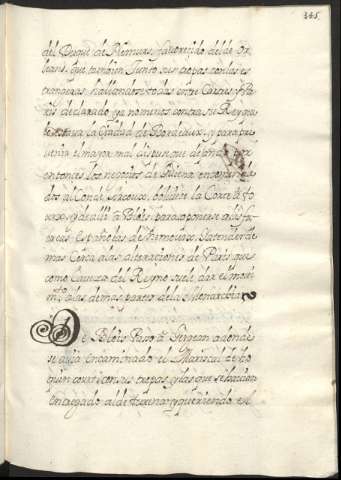 345.
del Duque de Nemurs, favorecido del de Or
leans, que tambien Junto sus tropas con las es
trangeras, hallandose todas entre Cartres, y Pa
ris declarado ya nomenos contra su Rey que
la Ciudad de Bordeaux, y para pre
uenir el mayor mal dispuso que dejando por
entonces los negocios de Guiena encomenda
dos al Conde Arcourt, boluiese la Corte a To
urs, y de alli a Blois, para oponerse a las fu
erças Españolas de Nemours, y atender de
mas cerca a las alteraciones de Paris que
como Caueza del Reyno suele dar el moti
a las demas partes de la Monarchia
De Blois Passo a Gergeau adonde
se auia Encaminado el Mariscal de Ho
quincourt con sus tropas, y las que se hauian
Entregado al de Turena y queriendo el